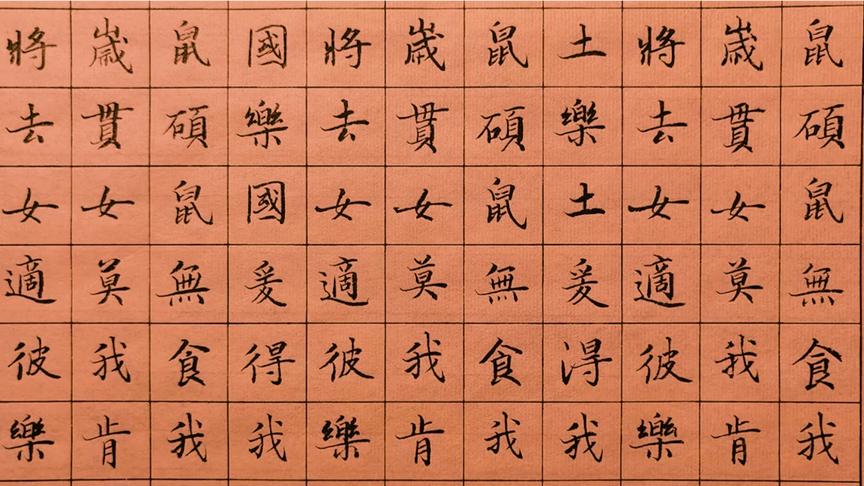 鼠碩鼠無食我
歲貫女莫我肯
將去女適彼樂
土樂土爰淂我
鼠碩鼠無食我
歲貫女莫我肯
將去女適彼樂
國樂國爰得我
鼠碩鼠無食我
歲貫女莫我肯
將去女適彼樂